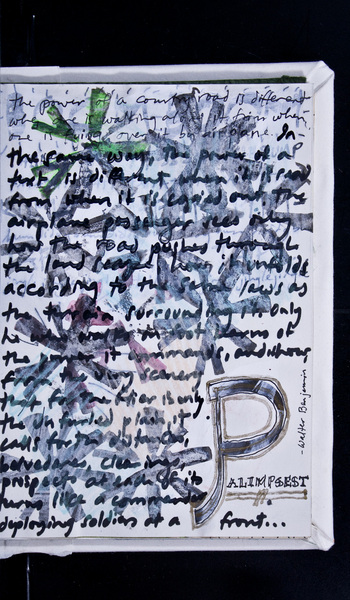 the power of a country road is different
when one is walking along it from when
one is flying over it by airplane. In
the same way, the power of a
text is different when it is read
from when it is copied out. The
airplane passenger sees only
how the road pushes through
the landscape, how it unfolds
according to the same laws as
the terrain surrounding it. Only
he who walks the road learns of
the power it commands, and how,
from the very scenery
that for the flier is only
the unfurled plain, it
calls forth distances,
belvederes, clearings,
prospects at each of its
turns like a commander
deploying soldiers at a front...
- Walter Benjamin
PALIMPSEST